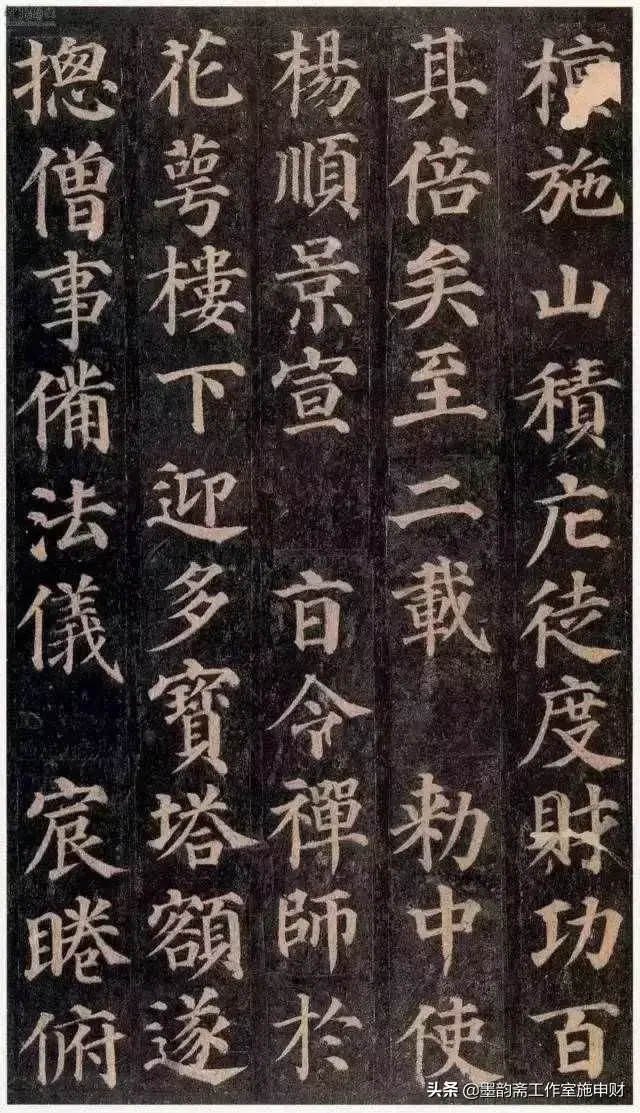 檀施山積庀徒度財功百
其倍矣至二載 勑中使
楊順景宣 旨令禪師於
花萼樓下迎多寶塔額遂
揔僧事備法儀 宸睠俯
头条 @墨韵斋工作室施申财